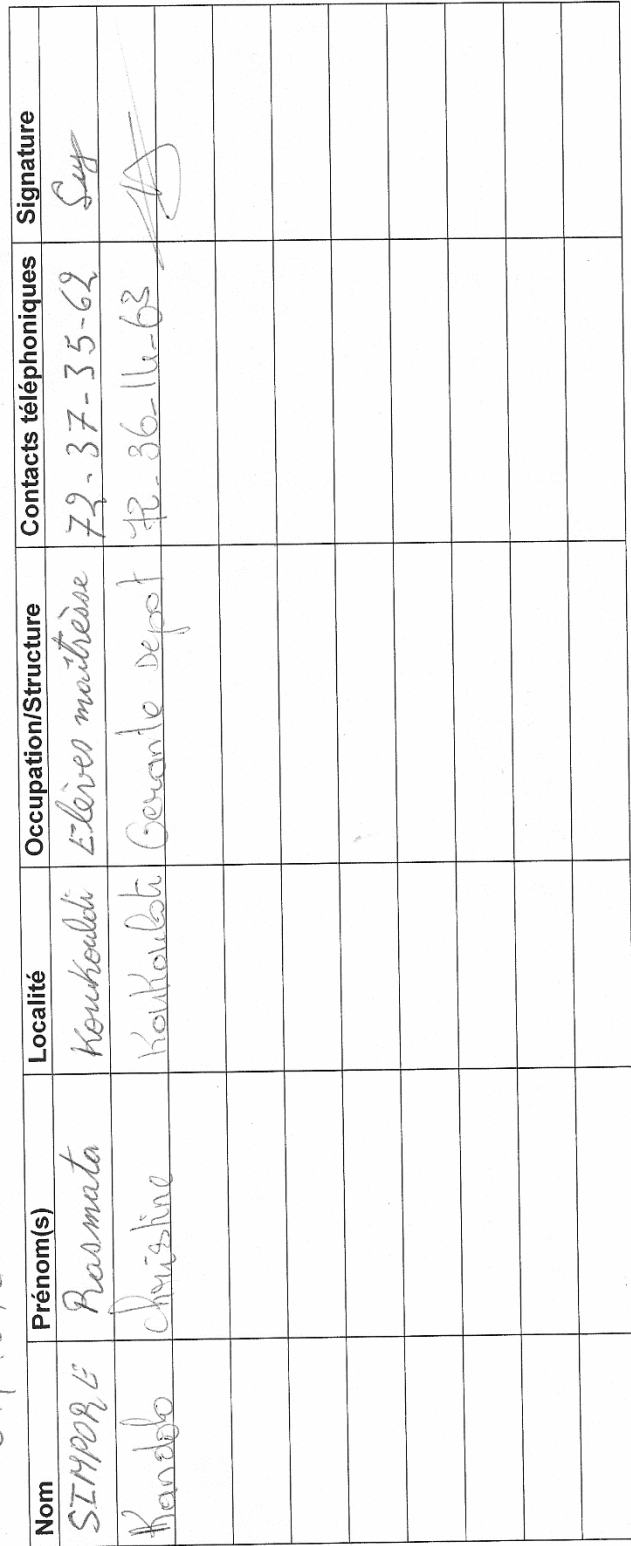 Nom Prénom(s) Localité Occupation/Structure Contacts téléphoniques Signature
SIMPORE Rasmata Koukouldi Elèves maîtresse 72-37-35-62
Kandolo Christine Koukouldi Gerante Depot 72-36-14-63